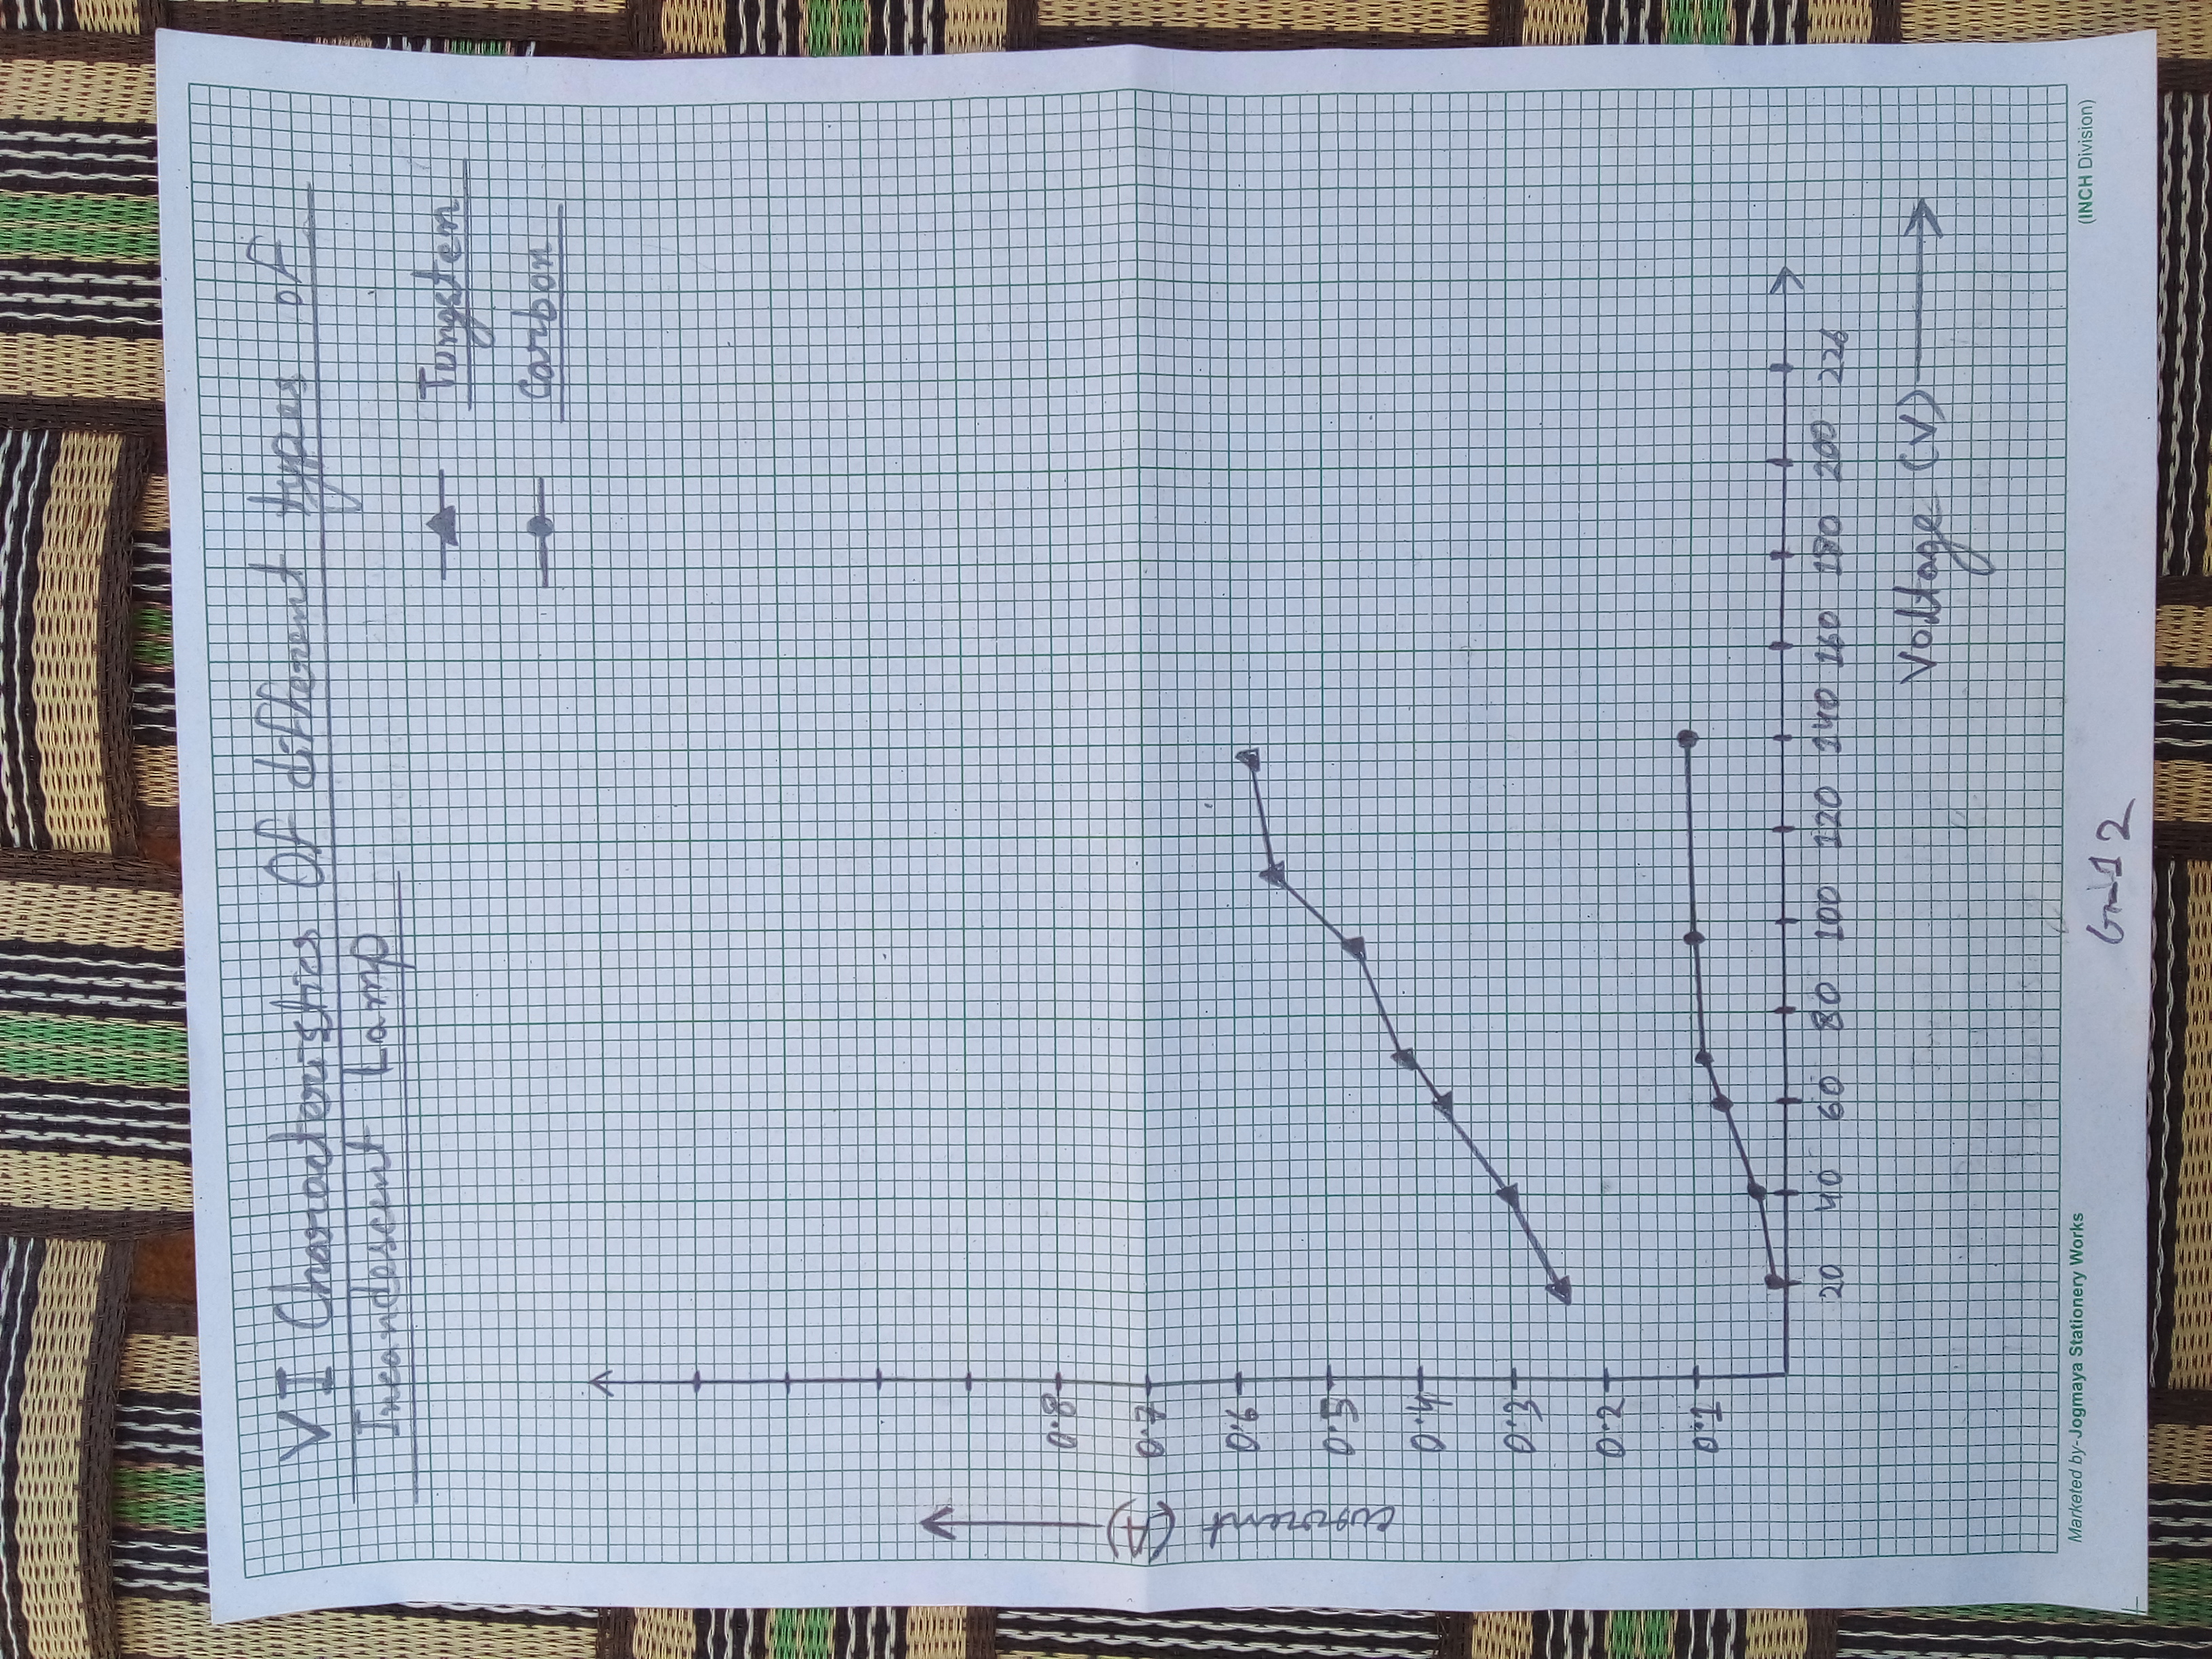 VI Characteristics Of different types of
Incandescent Lamp
Tungsten
Carbon
0.8
0.7
0.6
0.5
0.4
0.3
0.2
0.1
Current (A)
20 40 60 80 100 120 140 160 180 200 226
Voltage (V)
Marketed by-Jogmaya Stationery Works
(INCH Division)